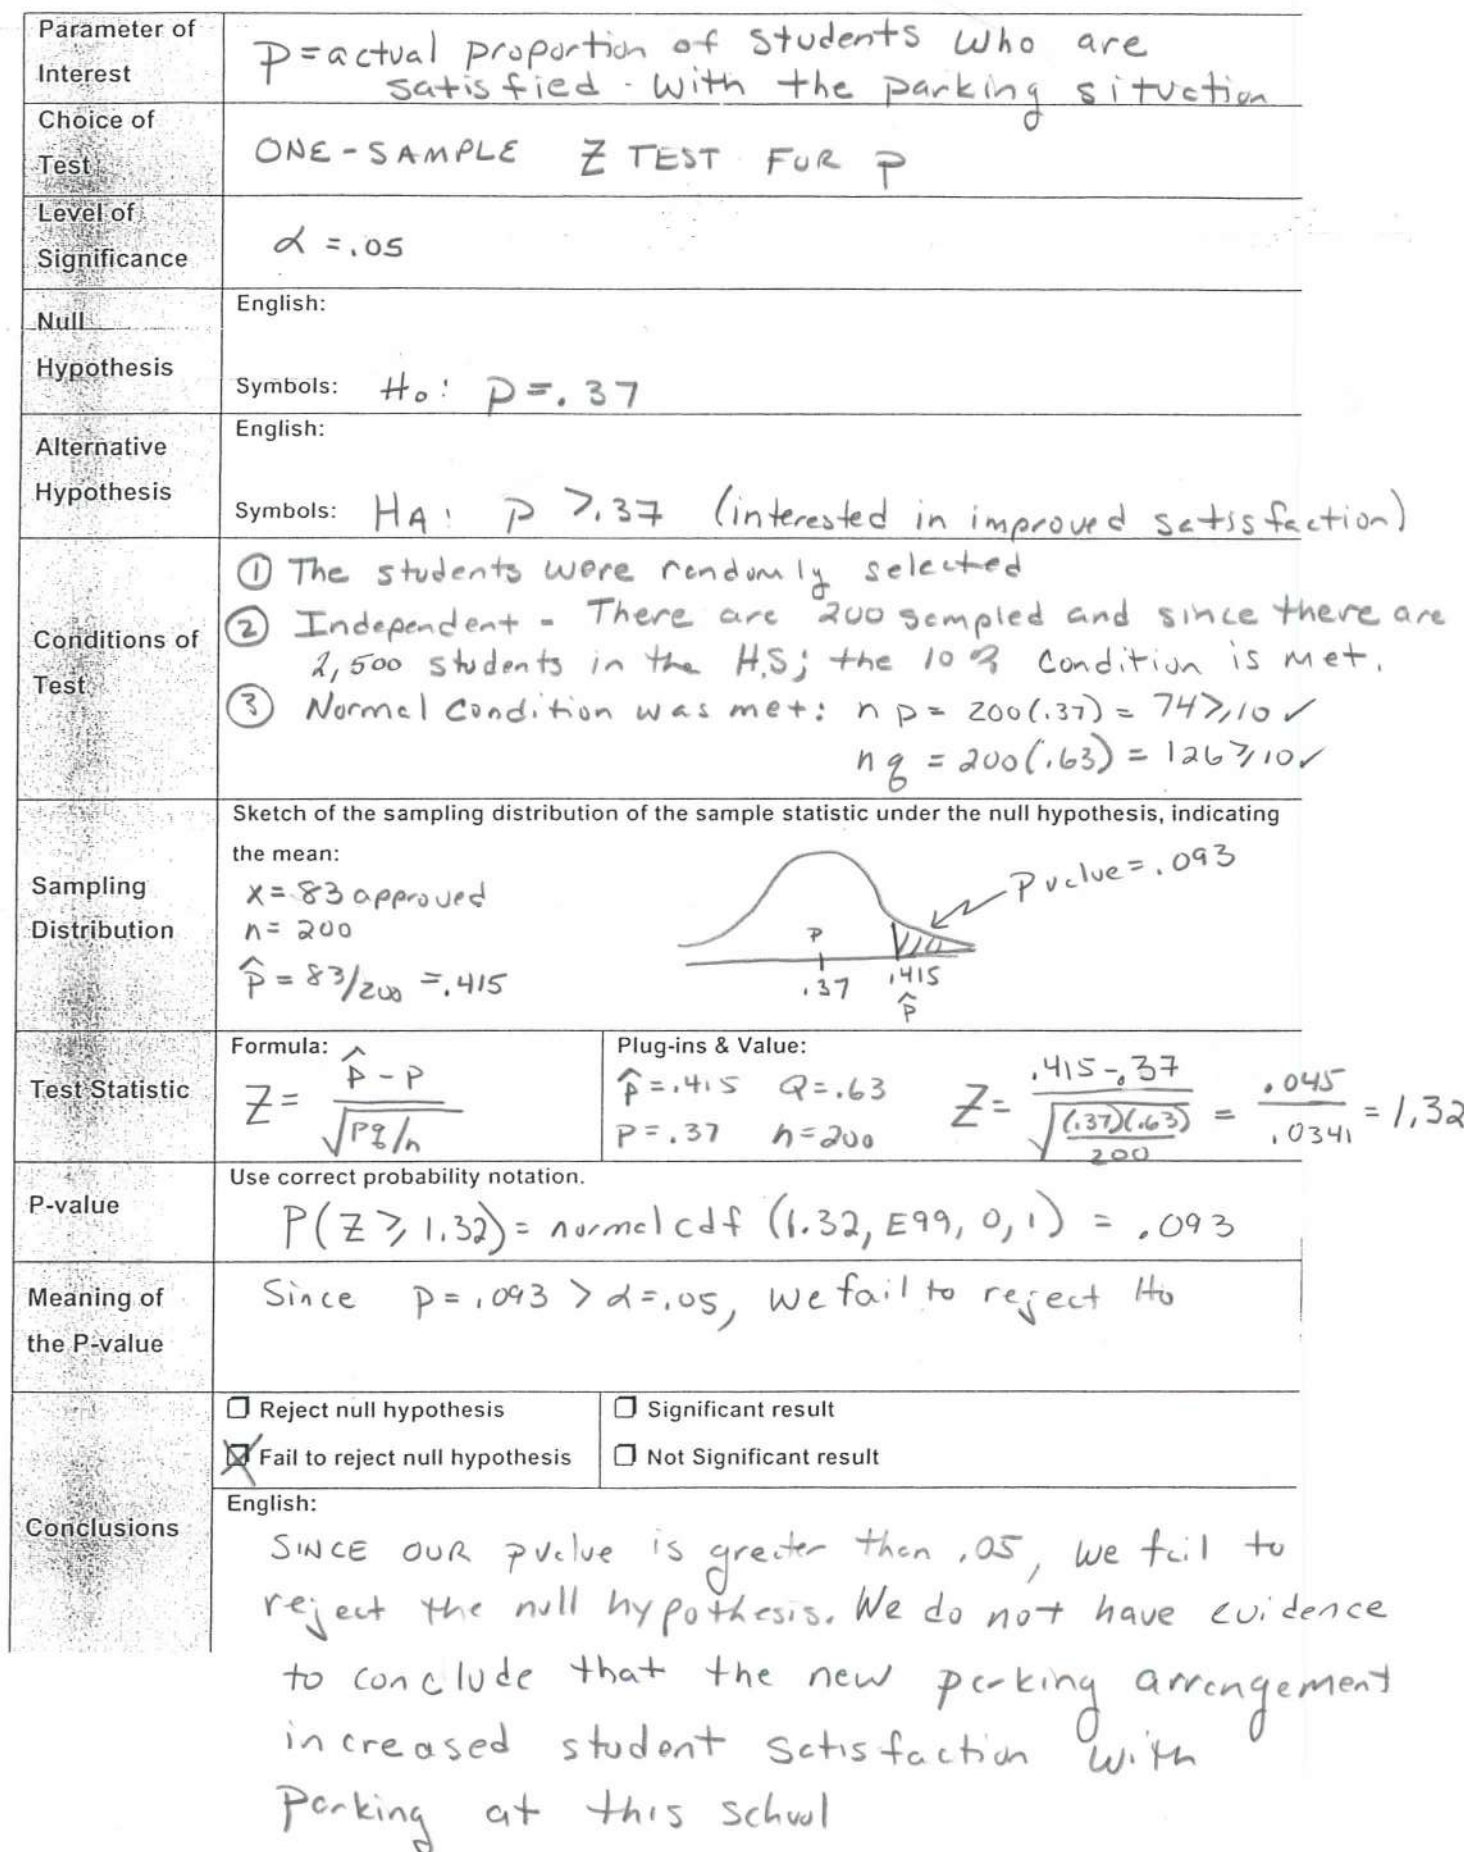 Parameter of
Interest
P = actual proportion of students who are
satisfied with the parking situation
Choice of
Test
ONE-SAMPLE Z TEST FOR P
Level of
Significance
α = .05
Null
Hypothesis
English:
Symbols: H₀: P = .37
Alternative
Hypothesis
English:
Symbols: HA: P > .37 (interested in improved satisfaction)
Conditions of
Test
① The students were randomly selected
② Independent - There are 200 sampled and since there are
2,500 students in the H.S; the 10% condition is met.
③ Normal Condition was met: np = 200(.37) = 74 ≥ 10 ✓
nq = 200(.63) = 126 ≥ 10 ✓
Sampling
Distribution
Sketch of the sampling distribution of the sample statistic under the null hypothesis, indicating
the mean:
x = 83 approved
n = 200
p̂ = 83/200 = .415
P
.37
.415
p̂
Pvalue = .093
Test Statistic
Formula:
Z = (p̂ - p) / √(pq/n)
Plug-ins & Value:
p̂ = .415 Q = .63
P = .37 n = 200
Z = (.415 - .37) / √((.37)(.63)/200) = .045/.0341 = 1.32
P-value
Use correct probability notation.
P(Z ≥ 1.32) = normalcdf (1.32, E99, 0, 1) = .093
Meaning of
the P-value
Since p = .093 > α = .05, we fail to reject H₀
Conclusions
Reject null hypothesis
Fail to reject null hypothesis
Significant result
Not Significant result
English:
SINCE OUR pvalue is greater than .05, we fail to
reject the null hypothesis. We do not have evidence
to conclude that the new parking arrangement
increased student satisfaction with
parking at this school